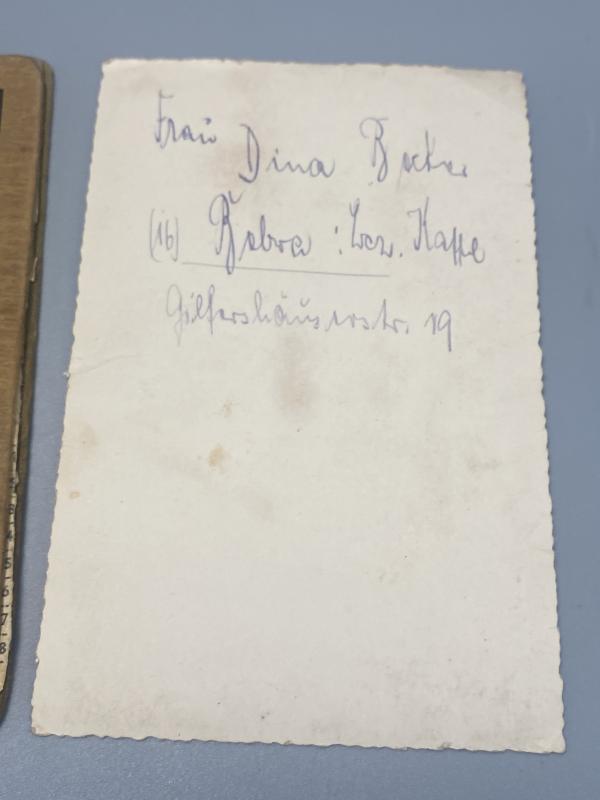 Frau Dina Becker
(16) Bebra : Bez. Kassel
Gilfershäuserstr. 19